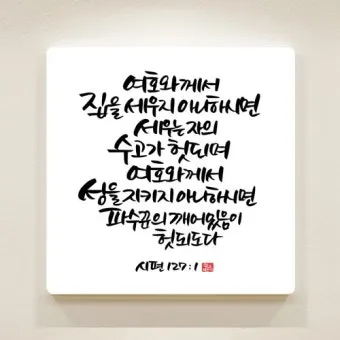 여호와께서
집을 세우지 아니하시면
세우는 자의
수고가 헛되며
여호와께서
성을 지키지 아니하시면
파수꾼의 깨어있음이
헛되도다
시편 127:1